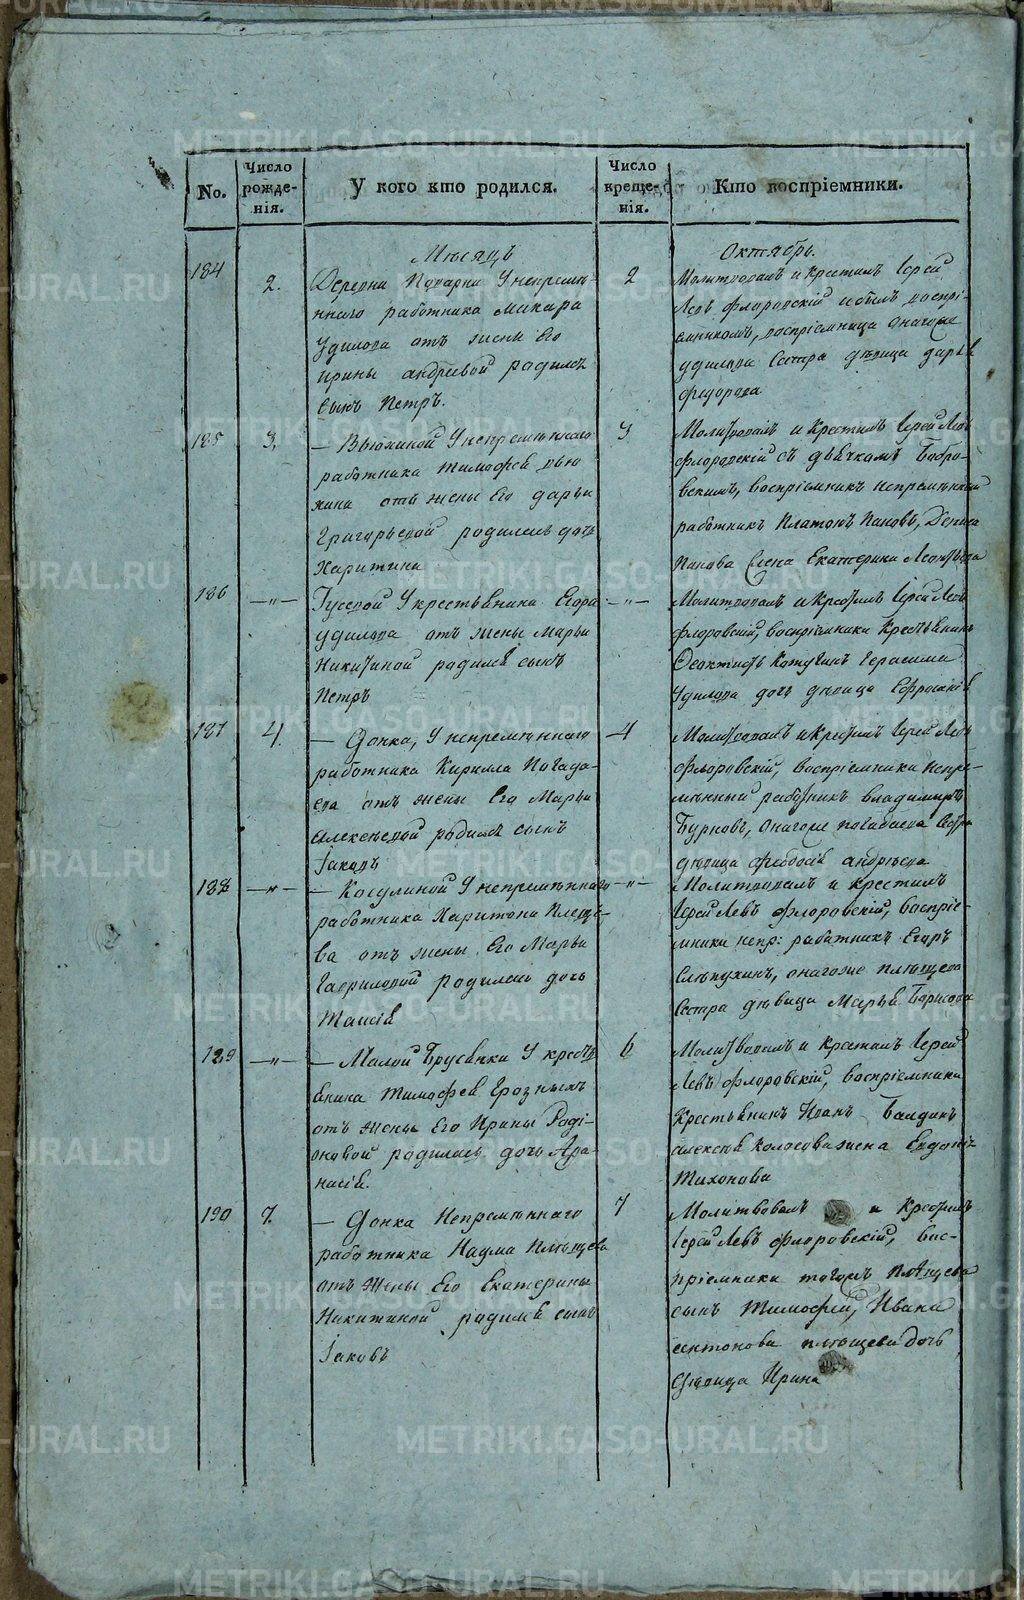 No.
Число рожде-нія.
У кого кто родился.
Число креще-нія.
Кто воспріемники.
Мѣсяцъ
Октябрь.
184
2.
Деревни Поварни У непремѣ-
ннаго работника Макара
Удилова отъ жены Его
Ирины Андреевой родился
сынъ Петръ.
2
Молитвовалъ и Крестилъ Іерей
Левъ Флоровскій и былъ воспрі-
емникомъ, воспріемница Онагоже
Удилова Сестра дѣвица Дарья
Федорова
185
3,
— Вьюхиной У непремѣннаго
работника Тимофея Вью
хина отъ жены Его Дарьи
Григорьевой родилась дочь
Харитина
3
Молитвовалъ и Крестилъ Іерей Левъ
Флоровскій съ дьячкомъ Бобро-
вскимъ, воспріемникъ непремѣнный
работникъ Платонъ Пановъ, Дениса
Панова жена Екатерина Леонтьева
186
—"—
Гусевой У крестьянина Егора
Удилова отъ жены Марьи
Никитиной родился сынъ
Петръ
—"—
Молитвовалъ и Крестилъ Іерей Левъ
Флоровскій, воспріемники Крестьянинъ
Феоктистъ Герасима
Удилова дочь дѣвица Ефросинія
187
4.
— Донка, У непремѣннаго
работника Кирилла Погада-
ева отъ жены Его Марьи
Алексѣевой родился сынъ
Іаковъ
4
Молитвовалъ и Крестилъ Іерей Левъ
Флоровскій, воспріемники непре-
мѣнный работникъ Владимиръ
Бурновъ, Онагоже Погадаева Сестра
дѣвица Феодосія Андрѣева
188
—"—
— Косулиной У непремѣннаго
работника Харитона Плеще-
ва отъ жены Его Марьи
Гавриловой родилась дочь
Таисія
—"—
Молитвовалъ и крестилъ
Іерей Левъ Флоровскій, воспріе-
мники непр: работникъ Егоръ
Слѣпухинъ, онагоже Плѣщева
Сестра дѣвица Марья Борисова
189
—"—
— Малой Брусянки У крестья
янина Тимофея Грозныхъ
отъ жены Его Ирины Роді-
оновой родилась дочь Афа-
насія.
6
Молитвовалъ и Крестилъ Іерей
Левъ Флоровскій, воспріемники
Крестьянинъ Иванъ Балдинъ
Алексѣя Колосова жена Евдокія
Тихонова
190
7.
— Донка Непремѣннаго
работника Наума Плѣщева
отъ жены Его Екатерины
Никитиной родился сынъ
Іаковъ
7
Молитвовалъ и Крестилъ
Іерей Левъ Флоровскій, вос-
пріемники тогожъ Плѣщева
сынъ Тимофей, Ивана
Антонова Плѣщева дочь
дѣвица Ирина
METRIKI.GASO-URAL.RU